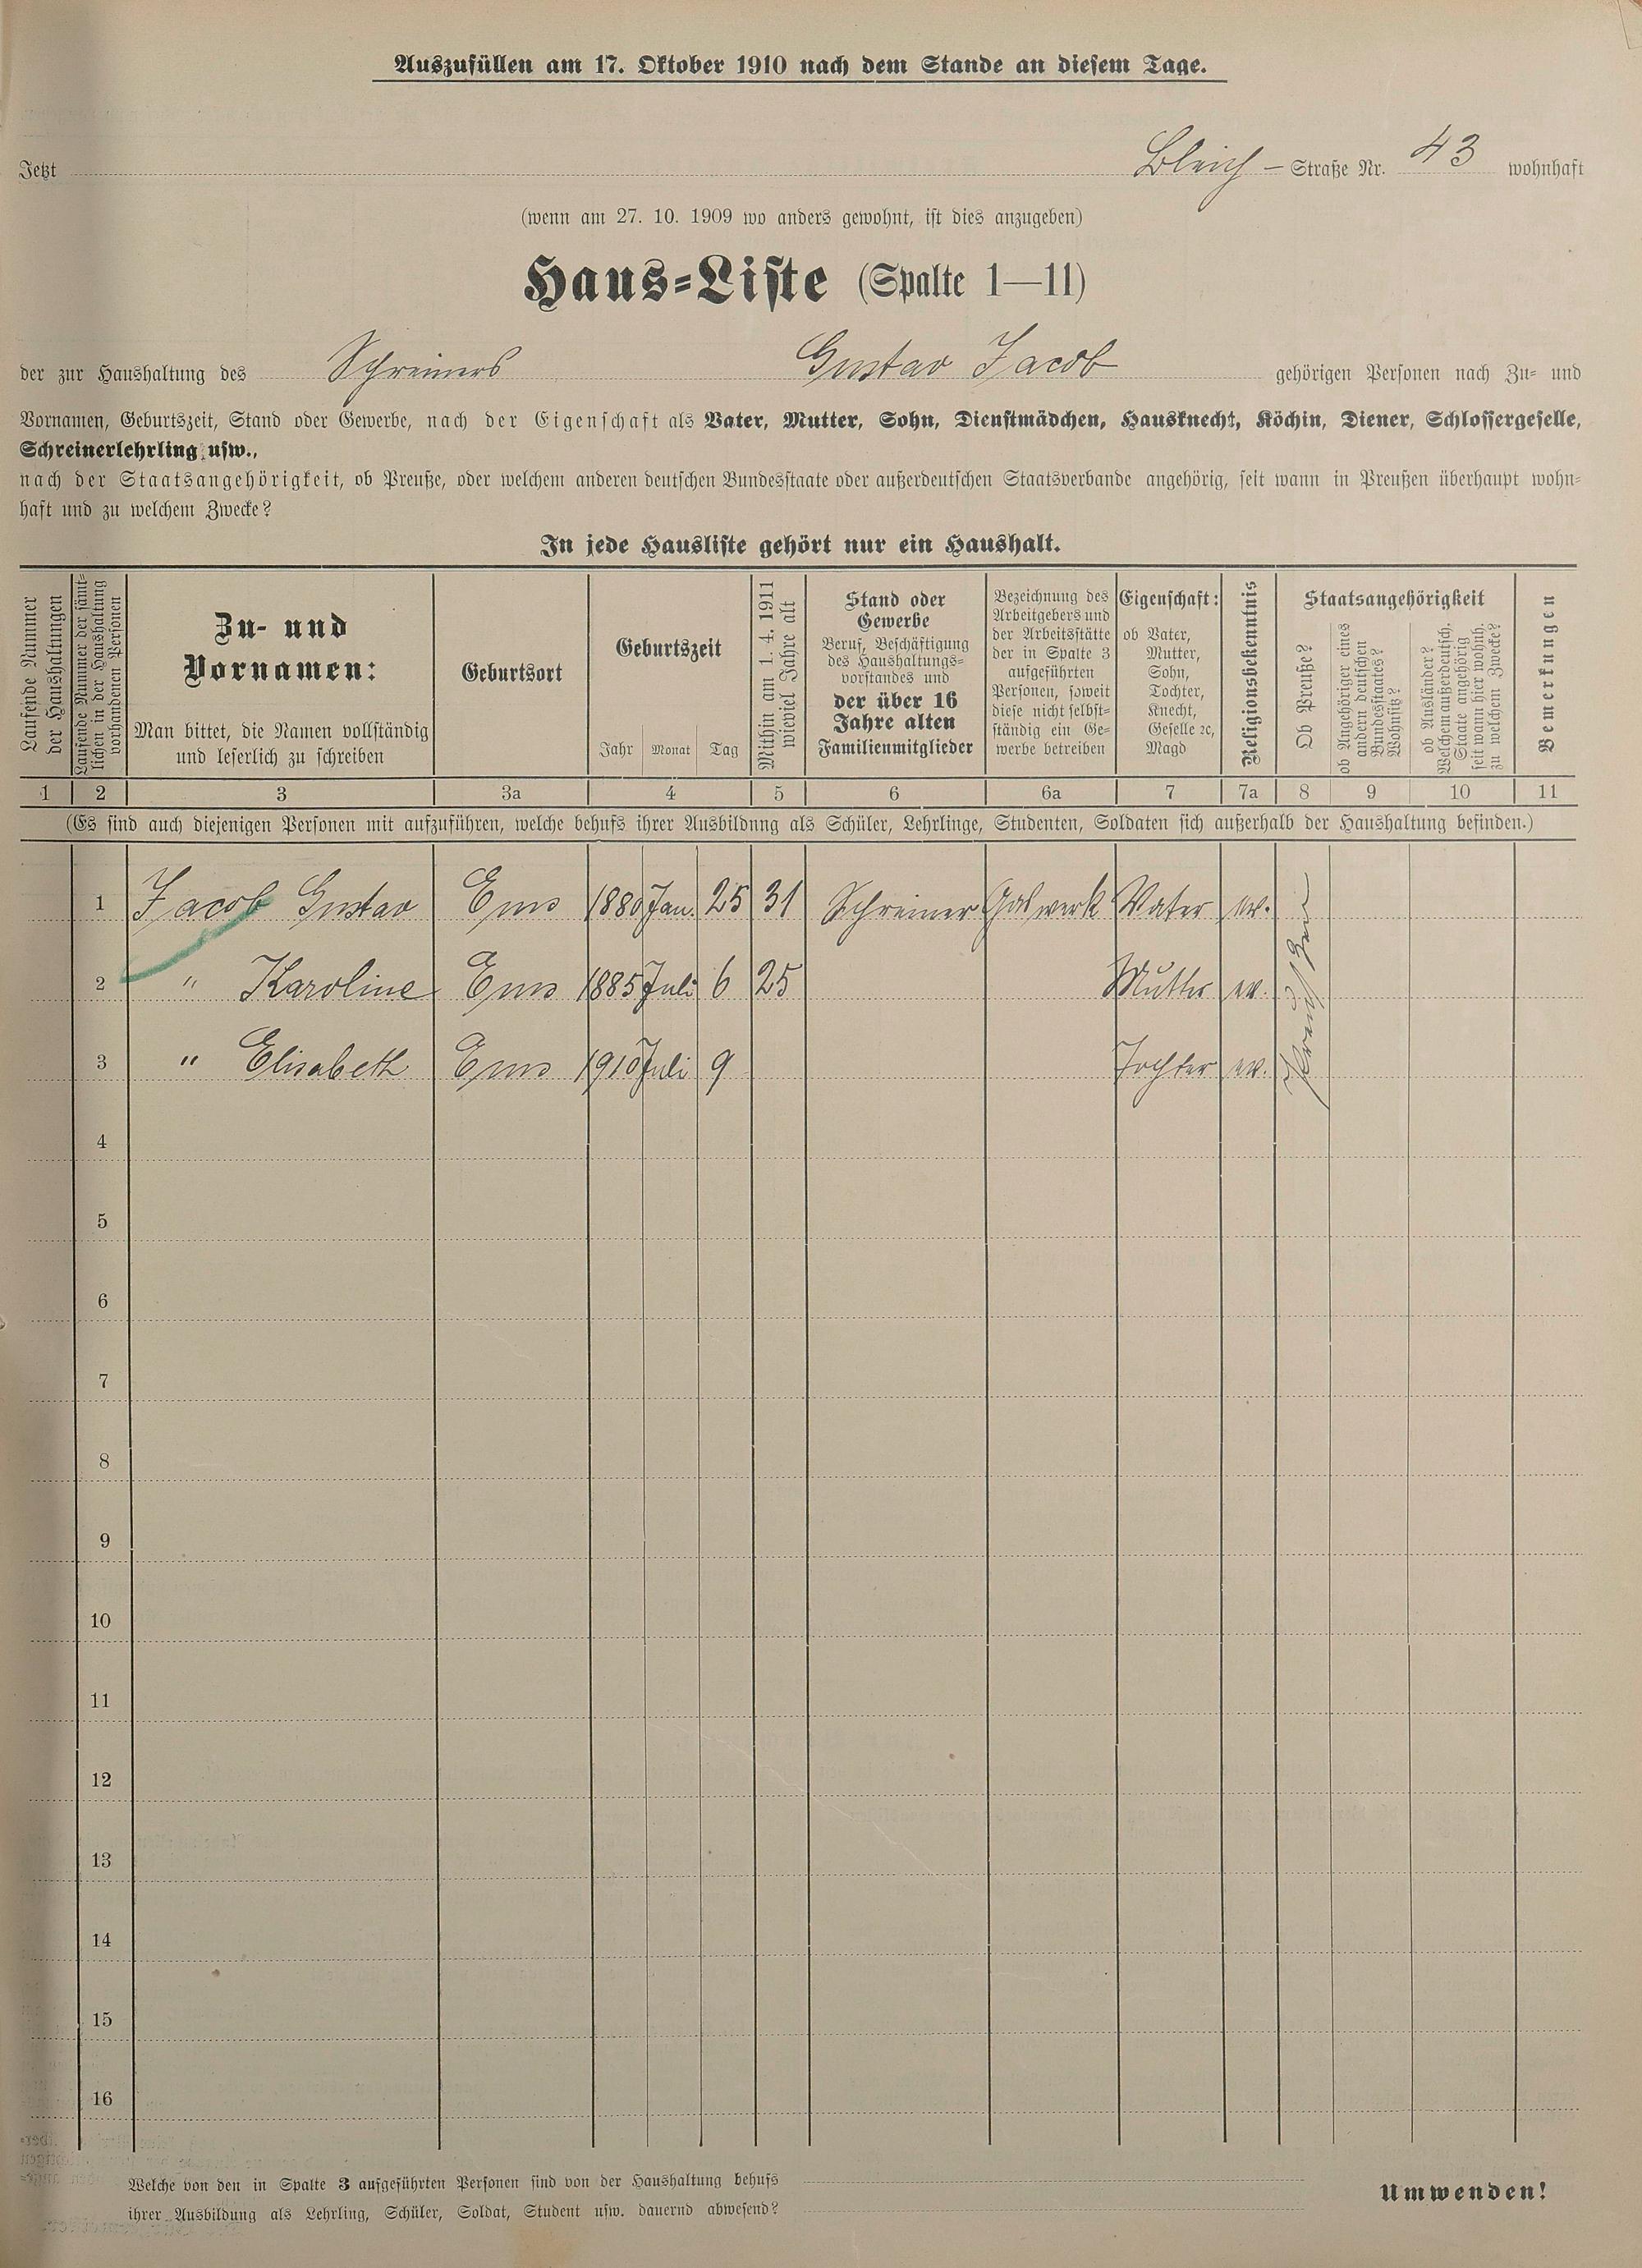 Auszufüllen am 17. Oktober 1910 nach dem Stande an diesem Tage.
Jetzt Bleich - Straße Nr. 43 wohnhaft
(wenn am 27. 10. 1909 wo anders gewohnt, ist dies anzugeben)
Haus-Liste (Spalte 1—11)
der zur Haushaltung des Schreiners Gustav Jacob gehörigen Personen nach Zu- und
Vornamen, Geburtszeit, Stand oder Gewerbe, nach der Eigenschaft als Vater, Mutter, Sohn, Dienstmädchen, Hausknecht, Köchin, Diener, Schlossergeselle,
Schreinerlehrling usw.,
nach der Staatsangehörigkeit, ob Preuße, oder welchem anderen deutschen Bundesstaate oder außerdeutschen Staatsverbande angehörig, seit wann in Preußen überhaupt wohn-
haft und zu welchem Zwecke?
In jede Hausliste gehört nur ein Haushalt.
Laufende Nummer
der Haushaltungen
Laufende Nummer der sämt-
lichen in der Haushaltung
vorhandenen Personen
Zu- und
Vornamen:
Man bittet, die Namen vollständig
und leserlich zu schreiben
Geburtsort
Geburtszeit
Jahr Monat Tag
Mithin am 1. 4. 1911
wieviel Jahre alt
Stand oder
Gewerbe
Beruf, Beschäftigung
des Haushaltungs-
vorstandes und
der über 16
Jahre alten
Familienmitglieder
Bezeichnung des
Arbeitgebers und
der Arbeitsstätte
der in Spalte 3
aufgeführten
Personen, soweit
diese nicht selbst-
ständig ein Ge-
werbe betreiben
Eigenschaft:
ob Vater,
Mutter,
Sohn,
Tochter,
Knecht,
Geselle ꝛc,
Magd
Religionsbekenntnis
Staatsangehörigkeit
Ob Preuße?
ob Angehöriger eines
andern deutschen
Bundesstaates?
Wohnsitz?
ob Ausländer?
Welchem außerdeutsch.
Staate angehörig
seit wann hier wohnh.
zu welchem Zwecke?
Bemerkungen
1 2 3 3a 4 5 6 6a 7 7a 8 9 10 11
(Es sind auch diejenigen Personen mit aufzuführen, welche behufs ihrer Ausbildung als Schüler, Lehrlinge, Studenten, Soldaten sich außerhalb der Haushaltung befinden.)
1 Jacob Gustav Ems 1880 Jan. 25 31 Schreiner Gaswerk Vater ev.
2 " Karoline Ems 1885 Juli 6 25 Mutter ev.
3 " Elisabeth Ems 1910 Juli 9 Tochter ev.
4
5
6
7
8
9
10
11
12
13
14
15
16
Welche von den in Spalte 3 aufgeführten Personen sind von der Haushaltung behufs
ihrer Ausbildung als Lehrling, Schüler, Soldat, Student usw. dauernd abwesend?
Umwenden!